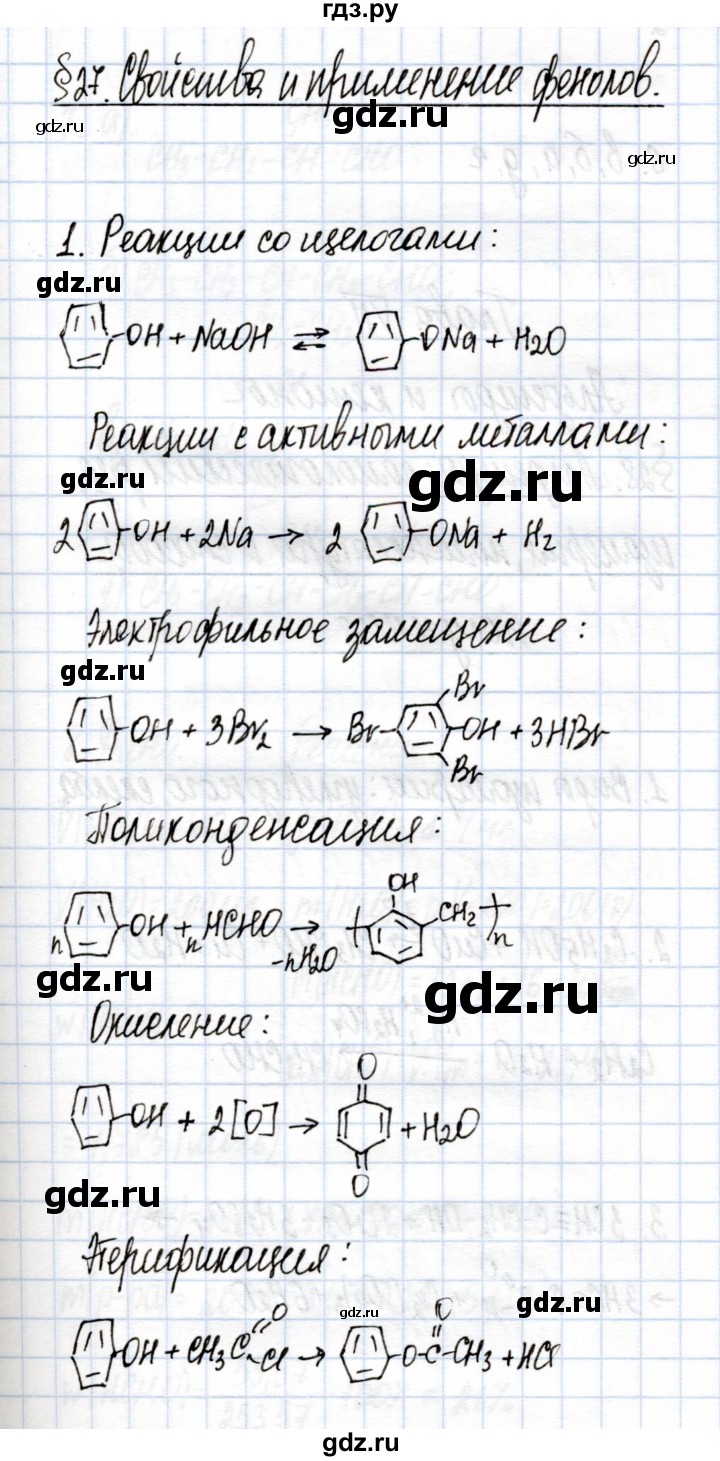 гдз.ру
§27. Свойства и применение фенолов.
gdz.ru
gdz.ru
gdz.ru
1. Реакции со щелочами:
gdz.ru
OH + NaOH ⇄ ONa + H2O
Реакции с активными металлами:
gdz.ru
gdz.ru
2 OH + 2Na → 2 ONa + H2
Электрофильное замещение:
gdz.ru
OH + 3Br2 → Br Br OH Br + 3HBr
Поликонденсация:
n OH + n HCHO → -nH2O OH CH2 n
gdz.ru
gdz.ru
Окисление:
OH + 2[O] → O O + H2O
gdz.ru
Этерификация:
gdz.ru
gdz.ru
OH + CH3C O Cl → O-C O -CH3 + HCl
gdz.ru